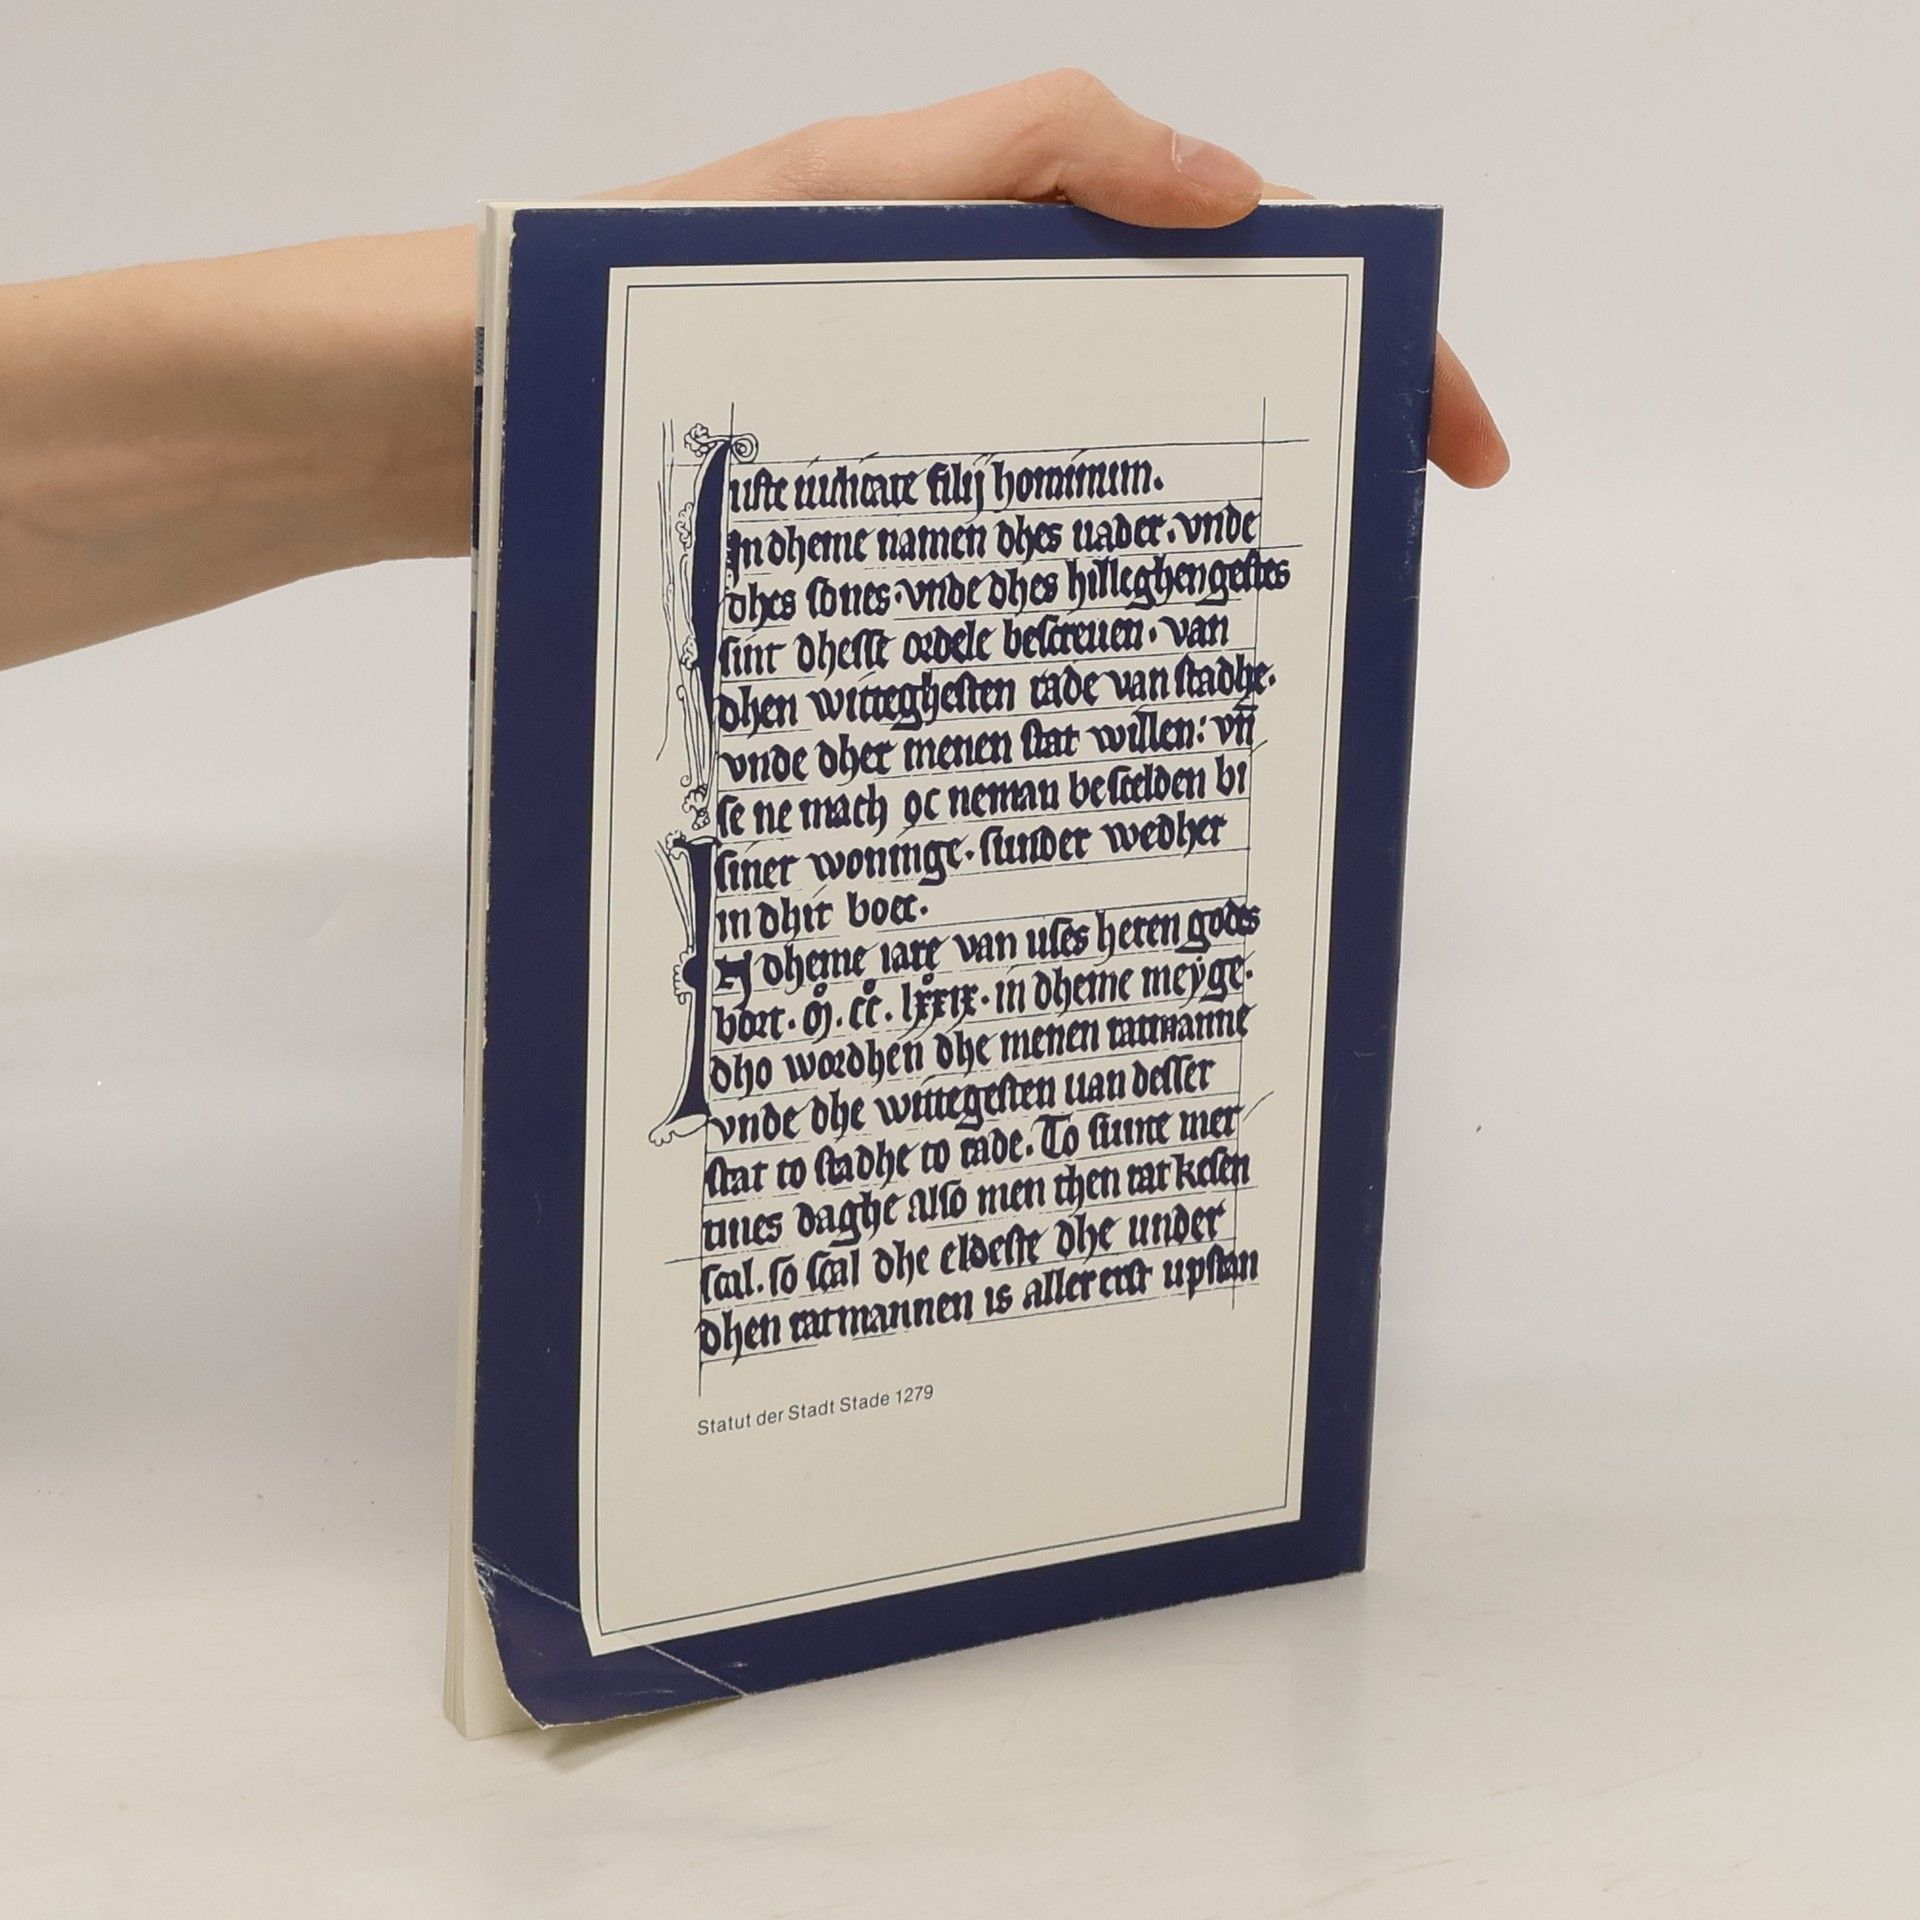 Iuste iudicate filij hominum.
In dheme namen dhes uader. vnde
dhes sones. vnde dhes hilleghen gestes
sint dhesse ordele bescreuen. van
dhen witteghesten rade van stadhe.
vnde dher menen stat willen: vn̄
se ne mach oc neman bescelden bi
siner woninge. sunder wedher
in dhit boec.
IN dheme iare van uses heren godes
bort. M̊. cc̊. lxx̊ix̊. in dheme meyge.
dho wordhen dhe menen ratmanne
vnde dhe wittegesten uan desser
stat to stadhe to rade. To sunte mer
tines daghe also men then rat kesen
scal. so scal dhe eldeste dhe under
dhen ratmannen is aller erst upstan
Statut der Stadt Stade 1279